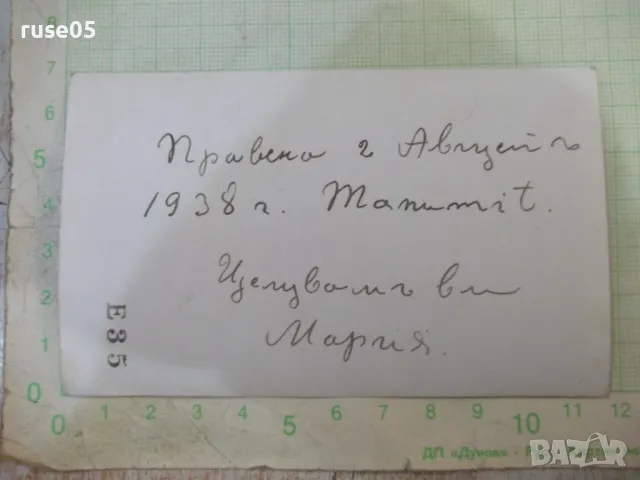 ruse05
Правено 2 Августъ
1938 г. Manumit.
Целувамъ ви
Мария.
E 35
8
7
6
5
4
3
2
1
0
0 5 10 11 12
ДП «Дунов» - Р
BAZAR